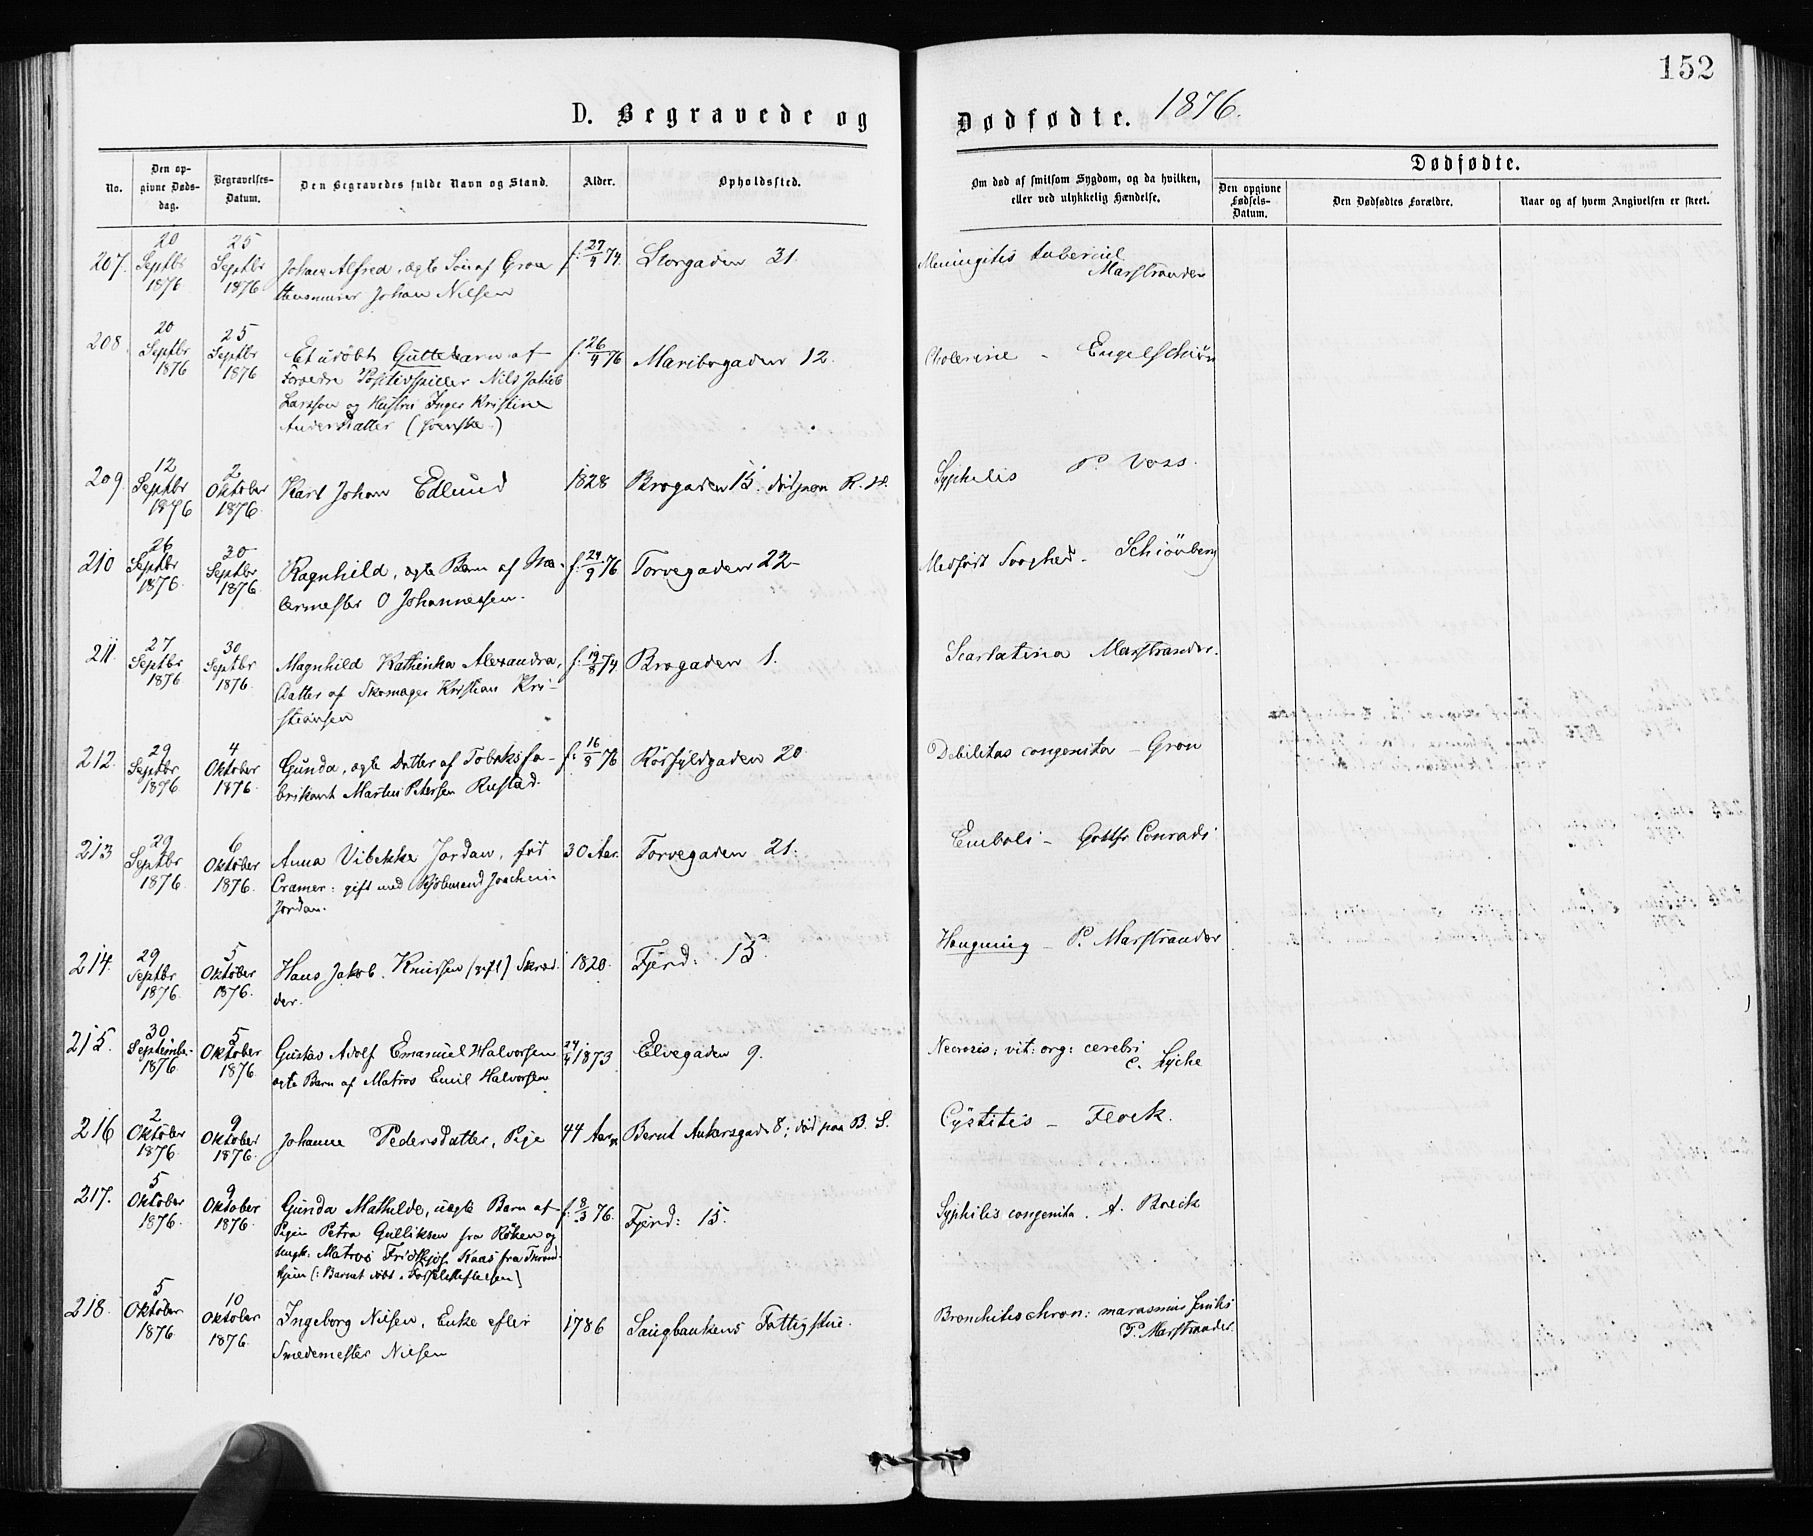 152
D. Begravede og Dødfødte. 1876.
No.
Den opgivne Dødsdag.
Begravelses-Datum.
Den Begravedes fulde Navn og Stand.
Alder.
Opholdssted.
Om død af smitsom Sygdom, og da hvilken, eller ved ulykkelig Hændelse.
Dødfødte.
Den opgivne Fødsels-Datum.
Den Dødfødtes Forældre.
Naar og af hvem Angivelsen er skeet.
207. 20 Septbr 1876 25 Septbr 1876 Johan Alfred, ægte Søn af
Johan Nilsen f. 27/9 74. Storgaden 31. Meningitis tubercul
Marstrander
208. 20 Septbr 1876 25 Septbr 1876 Et udöbt Guttebarn af f. 26/4 76 Maribogaden 12. Cholerine - Engelschiøn
Positivspiller Nils Jakob
Larsson og Hustru Inger Kristine
Andersdatter (svenske.)
209. 12 Septbr 1876 2 Oktober 1876. Karl Johan Edlund 1828 Brogaden 15. död paa R. H. Syphilis P. Voss.
210 26 Septbr 1876. 30 Septbr 1876 Ragnhild, ægte Barn af Ma- f. 24/9 76 Torvegaden 22 - Medfödt Svaghed - Schiönberg
lermester O Johannessen.
211. 27 Septbr 1876 30 Septbr 1876. Magnhild Kathinka Alexandra, f. 19/8 74 Brogaden 1. Scarlatina Marstrander.
Datter af Skomager Kristian Kri-
stiansen
212. 29 Septbr 1876 4 Oktober 1876. Gunda, ægte Datter af Tobaksfa- f. 16/9 76 Rörfyldgaden 20 Debilitas congenita - Gron
brikant Martin Petersen Rustad.
213 29 Septbr 1876. 6 Oktober 1876. Anna Vibekke Jordan, föd 30 Aar. Torvegaden 21. Emboli - Gottfr Conradi
Cramer: gift med Kjöbmand Joachim
Jordan.
214. 29 Septbr 1876. 5 Oktober 1876. Hans Jakob Knussen (gift) Skræd- 1820. Fjerd: 15. Hængning - P. Marstrander
der.
215. 30 Septembr. 1876 5 Oktober 1876. Gustav Adolf Emanuel Halvorsen 24/4 1873 Elvegaden 9. Necrosis: vit: org: cerebri
ægte Barn af Matros Emil Halvorsen C. Lyche
216 2 Oktober 1876. 9 Oktober 1876. Johanne Pedersdatter, Pige 44 Aar Bernt Ankersgade 8; död paa B. S. Cystitis - Flock.
217. 5 Oktober 1876. 9 Oktober 1876. Gunda Mathilde, uægte Barn af f. 8/3 76. Fjerd: 15. Syphilis congenita. A. Boeck
Pigen Petra Gulliksen fra Röken og
Matros Fridthjof Kaas fra Thrond-
hjem (: Barnet döbt i Födselsstiftelsen)
218. 5 Oktober 1876 10 Oktober 1876. Ingeborg Nilsen, Enke efter 1786 Saugbankens Fattigstue. Bronchitis chron: marasmus senilis
Smedemester Nilsen P. Marstrander.